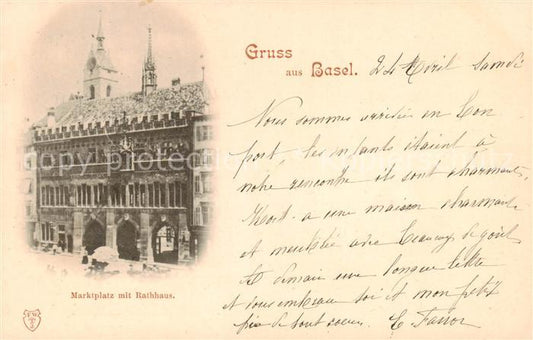 Gruss
aus Basel.
24 Avril Samedi
Nous sommes arrivés en bon
port, les enfants étaient à
notre rencontre ils sont charmants,
a une maison charmante
et meublée avec beaucoup de goût
demain une longue lettre
et vous embrasse toi et mon petit
de tout coeur.
Marktplatz mit Rathhaus.